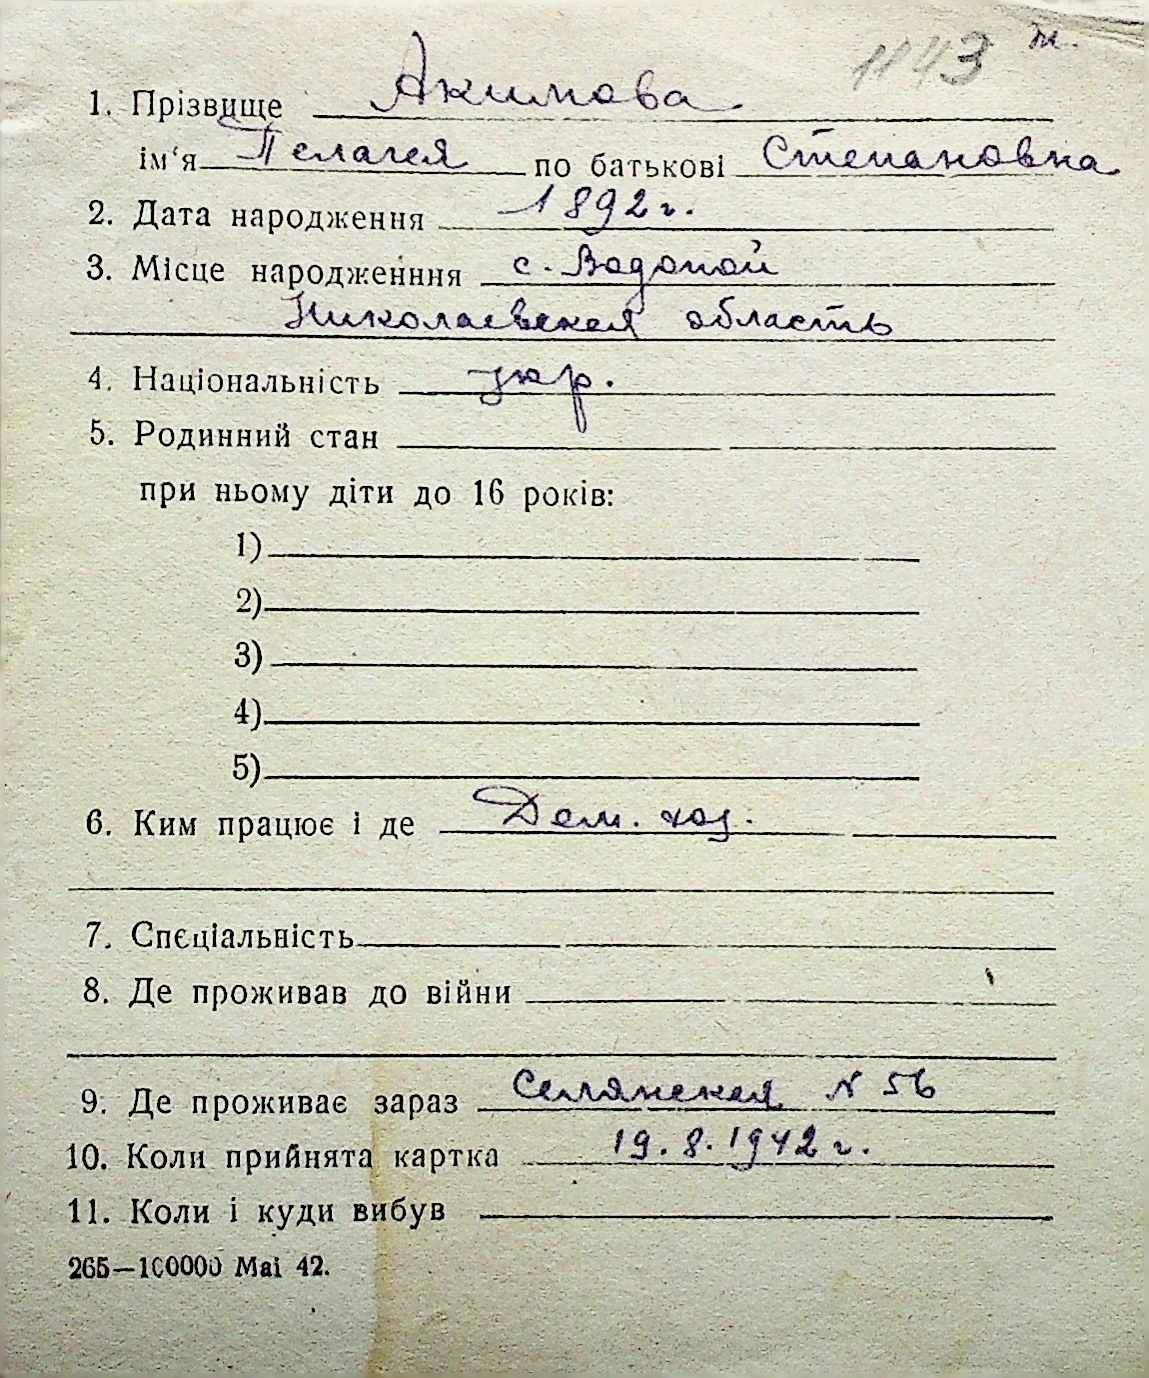 1143 т.
1. Прізвище Акимова
ім'я Пелагея по батькові Степановна
2. Дата народження 1892 г.
3. Місце народженння с. Водопой
Николаевская область
4. Національність укр.
5. Родинний стан
при ньому діти до 16 років:
1)
2)
3)
4)
5)
6. Ким працює і де Дом. хоз.
7. Спєціальність
8. Де проживав до війни
9. Де проживає зараз Селянская N 56
10. Коли прийнята картка 19.8.1942 г.
11. Коли і куди вибув
265—100000 Маі 42.